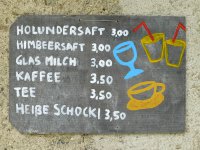 HOLUNDERSAFT 3,00
HIMBEERSAFT 3,00
GLAS MILCH 3,00
KAFFEE 3,50
TEE 3,50
HEIßE SCHOCKI 3,50